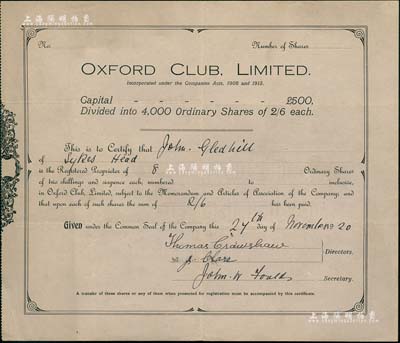 上海陽明拍賣
No.
Number of Shares
OXFORD CLUB, LIMITED.
Incorporated under the Companies Acts, 1908 and 1913.
Capital - - - - - - £500,
Divided into 4,000 Ordinary Shares of 2/6 each.
This is to Certify that John Gledhill
of Sykes Head
is the Registered Proprietor of 8 Ordinary Shares
of two shillings and sixpence each numbered to inclusive,
in Oxford Club, Limited, subject to the Memorandum and Articles of Association of the Company; and
that upon each of such shares the sum of 2/6 has been paid.
Given under the Common Seal of the Company this 27th day of November 20
Thomas Crawshaw
Directors.
John W Foulds
Secretary.
A transfer of these shares or any of them when presented for registration must be accompanied by this certificate.
上海陽明拍賣